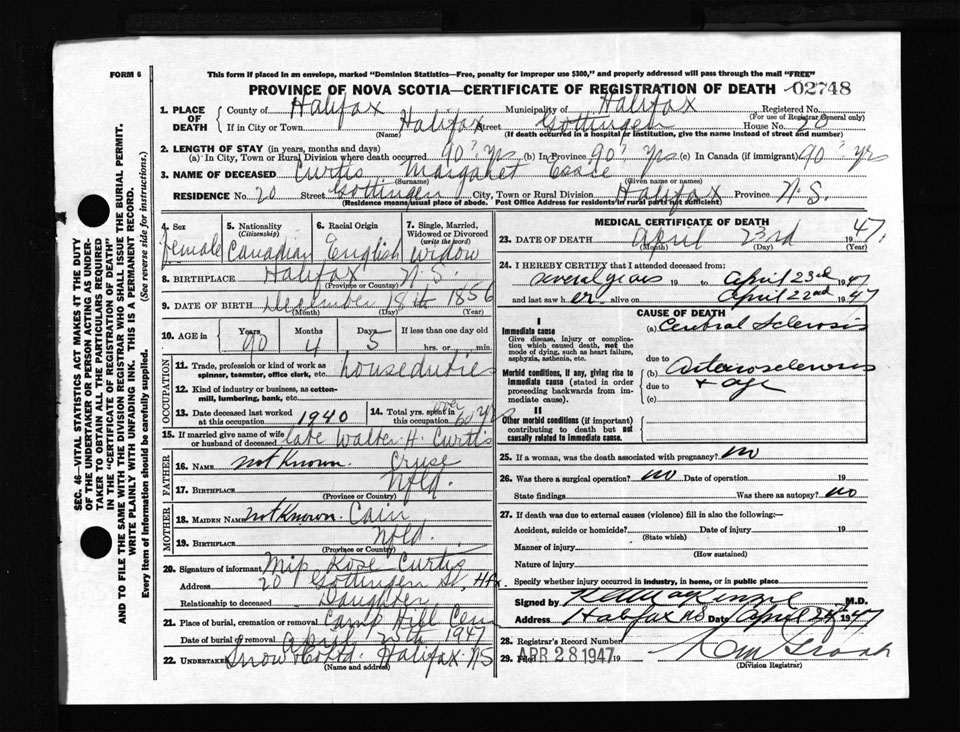 FORM 6
This form if placed in an envelope, marked "Dominion Statistics—Free, penalty for improper use $300," and properly addressed will pass through the mail "FREE"
PROVINCE OF NOVA SCOTIA—CERTIFICATE OF REGISTRATION OF DEATH 02748
SEC. 46—VITAL STATISTICS ACT MAKES IT THE DUTY
OF THE UNDERTAKER OR PERSON ACTING AS UNDER-
TAKER TO OBTAIN ALL THE PARTICULARS REQUIRED
IN THE "CERTIFICATE OF REGISTRATION OF DEATH"
AND TO FILE THE SAME WITH THE DIVISION REGISTRAR WHO SHALL ISSUE THE BURIAL PERMIT.
WRITE PLAINLY WITH UNFADING INK. THIS IS A PERMANENT RECORD.
Every item of Information should be carefully supplied. (See reverse side for instructions.)
1. PLACE OF DEATH County of Halifax Municipality of Halifax Registered No.
(For use of Registrar General only)
If in City or Town Halifax Street Gottingen House No. 20
(Name) (If death occurred in a hospital or institution, give the name instead of street and number)
2. LENGTH OF STAY (in years, months and days)
(a) In City, Town or Rural Division where death occurred 90 yrs (b) In Province 90 yrs (c) In Canada (if immigrant) 90 yrs
3. NAME OF DECEASED Curtis Margaret
(Surname) (Given name or names)
RESIDENCE No. 20 Street Gottingen City, Town or Rural Division Halifax Province N.S.
(Residence means usual place of abode. Post Office Address for residents in rural parts not sufficient)
4. Sex 5. Nationality (Citizenship) 6. Racial Origin 7. Single, Married, Widowed or Divorced (write the word)
Female Canadian English Widow
8. BIRTHPLACE Halifax N.S.
(Province or Country)
9. DATE OF BIRTH December 18th 1856
(Month) (Day) (Year)
10. AGE in Years Months Days If less than one day old
90 4 5 hrs. or min.
OCCUPATION
11. Trade, profession or kind of work as spinner, teamster, office clerk, etc. houseduties
12. Kind of industry or business, as cotton-mill, lumbering, bank, etc.
13. Date deceased last worked at this occupation 1940 14. Total yrs. spent in this occupation over 60 yrs
15. If married give name of wife or husband of deceased late Walter H. Curtis
FATHER
16. NAME not known. Cruse
17. BIRTHPLACE Nfld.
(Province or Country)
MOTHER
18. MAIDEN NAME not known. Cain
19. BIRTHPLACE Nfld.
(Province or Country)
20. Signature of informant Miss Rose Curtis
Address 20 Gottingen St, Hfx.
Relationship to deceased Daughter
21. Place of burial, cremation or removal Camp Hill Cem
Date of burial or removal April 25th 1947
22. UNDERTAKER Snow & Co Ltd. Halifax NS
(Name and address)
MEDICAL CERTIFICATE OF DEATH
23. DATE OF DEATH April 23rd 1947.
(Month) (Day) (Year)
24. I HEREBY CERTIFY that I attended deceased from:
several years 19 to April 23rd 1947
and last saw her alive on April 22nd 1947
CAUSE OF DEATH
I
Immediate cause
Give disease, injury or complication which caused death, not the mode of dying, such as heart failure, asphyxia, asthenia, etc.
(a) Cerebral Sclerosis
due to
Morbid conditions, if any, giving rise to immediate cause (stated in order proceeding backwards from immediate cause).
(b) Arteriosclerosis
due to + age
(c)
II
Other morbid conditions (if important) contributing to death but not causally related to immediate cause.
25. If a woman, was the death associated with pregnancy? no
26. Was there a surgical operation? no Date of operation 19
State findings Was there an autopsy? no
27. If death was due to external causes (violence) fill in also the following:—
Accident, suicide or homicide? Date of injury 19
(State which)
Manner of injury
(How sustained)
Nature of injury
Specify whether injury occurred in industry, in home, or in public place
Signed by MacKenzie M.D.
Address Halifax NS Date April 24th 1947
28. Registrar's Record Number
29. Filed APR 28 1947 19
(Division Registrar)